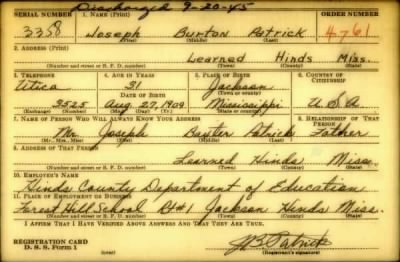 Discharged 9-20-45
SERIAL NUMBER 1. NAME (Print) ORDER NUMBER
3358 Joseph Burton Patrick 4761
(First) (Middle) (Last)
2. ADDRESS (Print)
Learned Hinds Miss.
(Number and street or R. F. D. number) (Town) (County) (State)
3. TELEPHONE 4. AGE IN YEARS 5. PLACE OF BIRTH 6. COUNTRY OF CITIZENSHIP
Utica 31 Jackson
DATE OF BIRTH (Town or county)
3525 Aug. 27, 1909 Mississippi U.S.A
(Exchange) (Number) (Mo.) (Day) (Yr.) (State or country)
7. NAME OF PERSON WHO WILL ALWAYS KNOW YOUR ADDRESS 8. RELATIONSHIP OF THAT PERSON
Mr. Joseph Baxter Patrick Father
(Mr., Mrs., Miss) (First) (Middle) (Last)
9. ADDRESS OF THAT PERSON
Learned Hinds Miss.
(Number and street or R. F. D. number) (Town) (County) (State)
10. EMPLOYER'S NAME
Hinds County Department of Education
11. PLACE OF EMPLOYMENT OR BUSINESS
Forest Hill School Rt#1 Jackson Hinds Miss.
(Number and street or R. F. D. number) (Town) (County) (State)
I AFFIRM THAT I HAVE VERIFIED ABOVE ANSWERS AND THAT THEY ARE TRUE.
REGISTRATION CARD
D. S. S. Form 1
J B Patrick
(Registrant's signature)